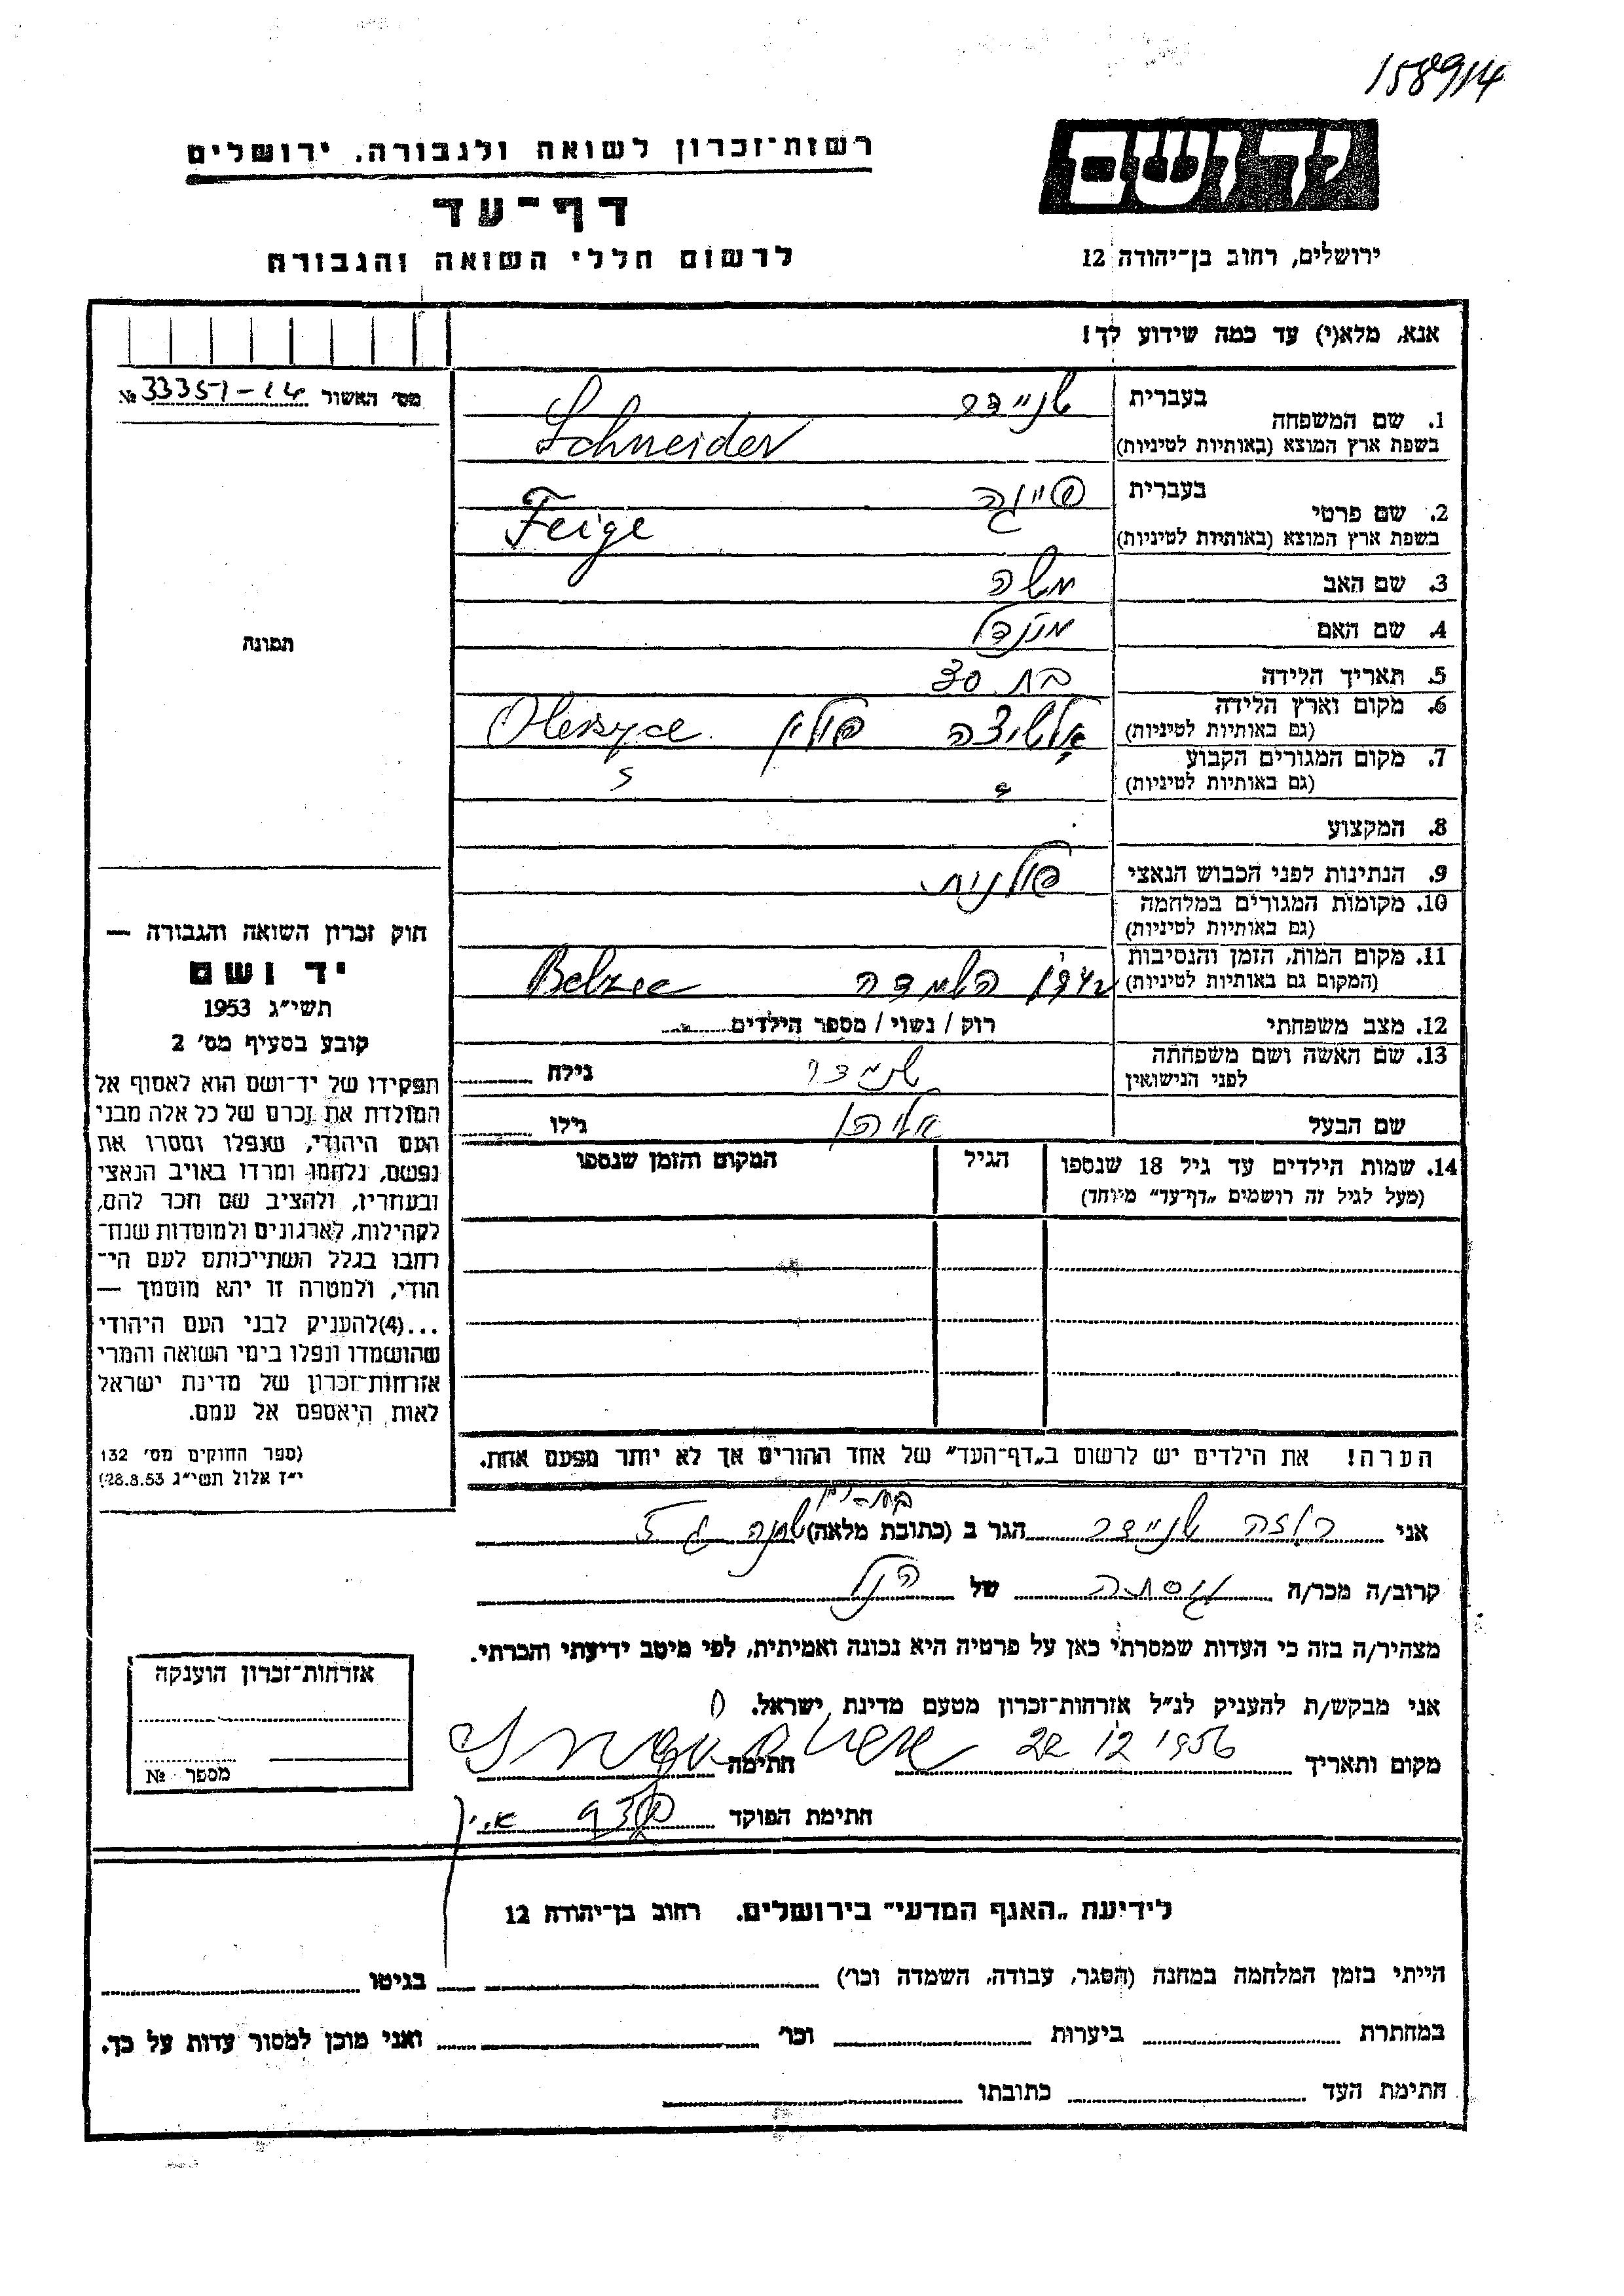 158914
יד ושם
רשות־זכרון לשואה ולגבורה, ירושלים
דף־עד
לרשום חללי השואה והגבורה
ירושלים, רחוב בן־יהודה 12
אנא, מלא(י) עד כמה שידוע לך!
מס׳ האשור № 33351-14
תמונה
1. שם המשפחה
בעברית שניידר
בשפת ארץ המוצא (באותיות לטיניות) Schneider
2. שם פרטי
בעברית פייגה
בשפת ארץ המוצא (באותיות לטיניות) Feige
3. שם האב משה
4. שם האם מינדל
5. תאריך הלידה בת 30
6. מקום וארץ הלידה אלשיצה פולין Oleszyce
(גם באותיות לטיניות)
7. מקום המגורים הקבוע
(גם באותיות לטיניות)
8. המקצוע
9. הנתינות לפני הכבוש הנאצי פולנית
10. מקומות המגורים במלחמה
(גם באותיות לטיניות)
11. מקום המות, הזמן והנסיבות השמדה Belzec
(המקום גם באותיות לטיניות)
12. מצב משפחתי רוק / נשוי / מספר הילדים
13. שם האשה ושם משפחתה גילה
לפני הנישואין
שם הבעל גילו
14. שמות הילדים עד גיל 18 שנספו הגיל המקום והזמן שנספו
(מעל לגיל זה רושמים „דף־עד״ מיוחד)
הערה! את הילדים יש לרשום ב„דף־העד״ של אחד ההורים אך לא יותר מפעם אחת.
חוק זכרון השואה והגבורה —
יד ושם
תשי״ג 1953
קובע בסעיף מס׳ 2
תפקידו של יד־ושם הוא לאסוף אל
המולדת את זכרם של כל אלה מבני
העם היהודי, שנפלו ומסרו את
נפשם, נלחמו ומרדו באויב הנאצי
ובעוזריו, ולהציב שם וזכר להם,
לקהילות, לארגונים ולמוסדות שנח־
רבו בגלל השתייכותם לעם הי־
הודי, ולמטרה זו יהא מוסמך —
...(4)להעניק לבני העם היהודי
שהושמדו ונפלו בימי השואה והמרי
אזרחות־זכרון של מדינת ישראל
לאות היאספם אל עמם.
(ספר החוקים מס׳ 132
י״ז אלול תשי״ג 28.8.53)
אני רוזה שניידר הגר ב (כתובת מלאה)
קרוב/ה מכר/ה גיסתה של הנ״ל
מצהיר/ה בזה כי העדות שמסרתי כאן על פרטיה היא נכונה ואמיתית, לפי מיטב ידיעתי והכרתי.
אני מבקש/ת להעניק לנ״ל אזרחות־זכרון מטעם מדינת ישראל.
מקום ותאריך 22 12 1956 חתימה
חתימת הפוקד
אזרחות־זכרון הוענקה
מספר №
לידיעת „האגף המדעי״ בירושלים. רחוב בן־יהודה 12
הייתי בזמן המלחמה במחנה (הסגר, עבודה, השמדה וכו׳) בגיטו
במחתרת ביערות וכו׳ ואני מוכן למסור עדות על כך.
חתימת העד כתובתו